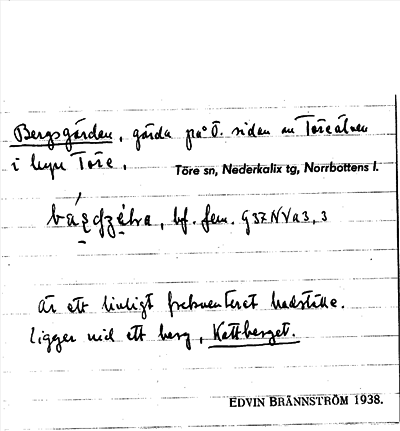 Bergsgården, gårda på Ö. sidan av Töreälven
i byn Töre.
Töre sn, Nederkalix tg, Norrbottens l.
bf. fem. G37NVa3,3
är ett livligt frekventerat badställe.
Ligger vid ett berg, Kattberget.
EDVIN BRÄNNSTRÖM 1938.